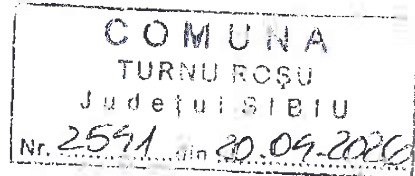 COMUNA
TURNU ROȘU
Județul SIBIU
Nr. 2591 din 20.04.2026